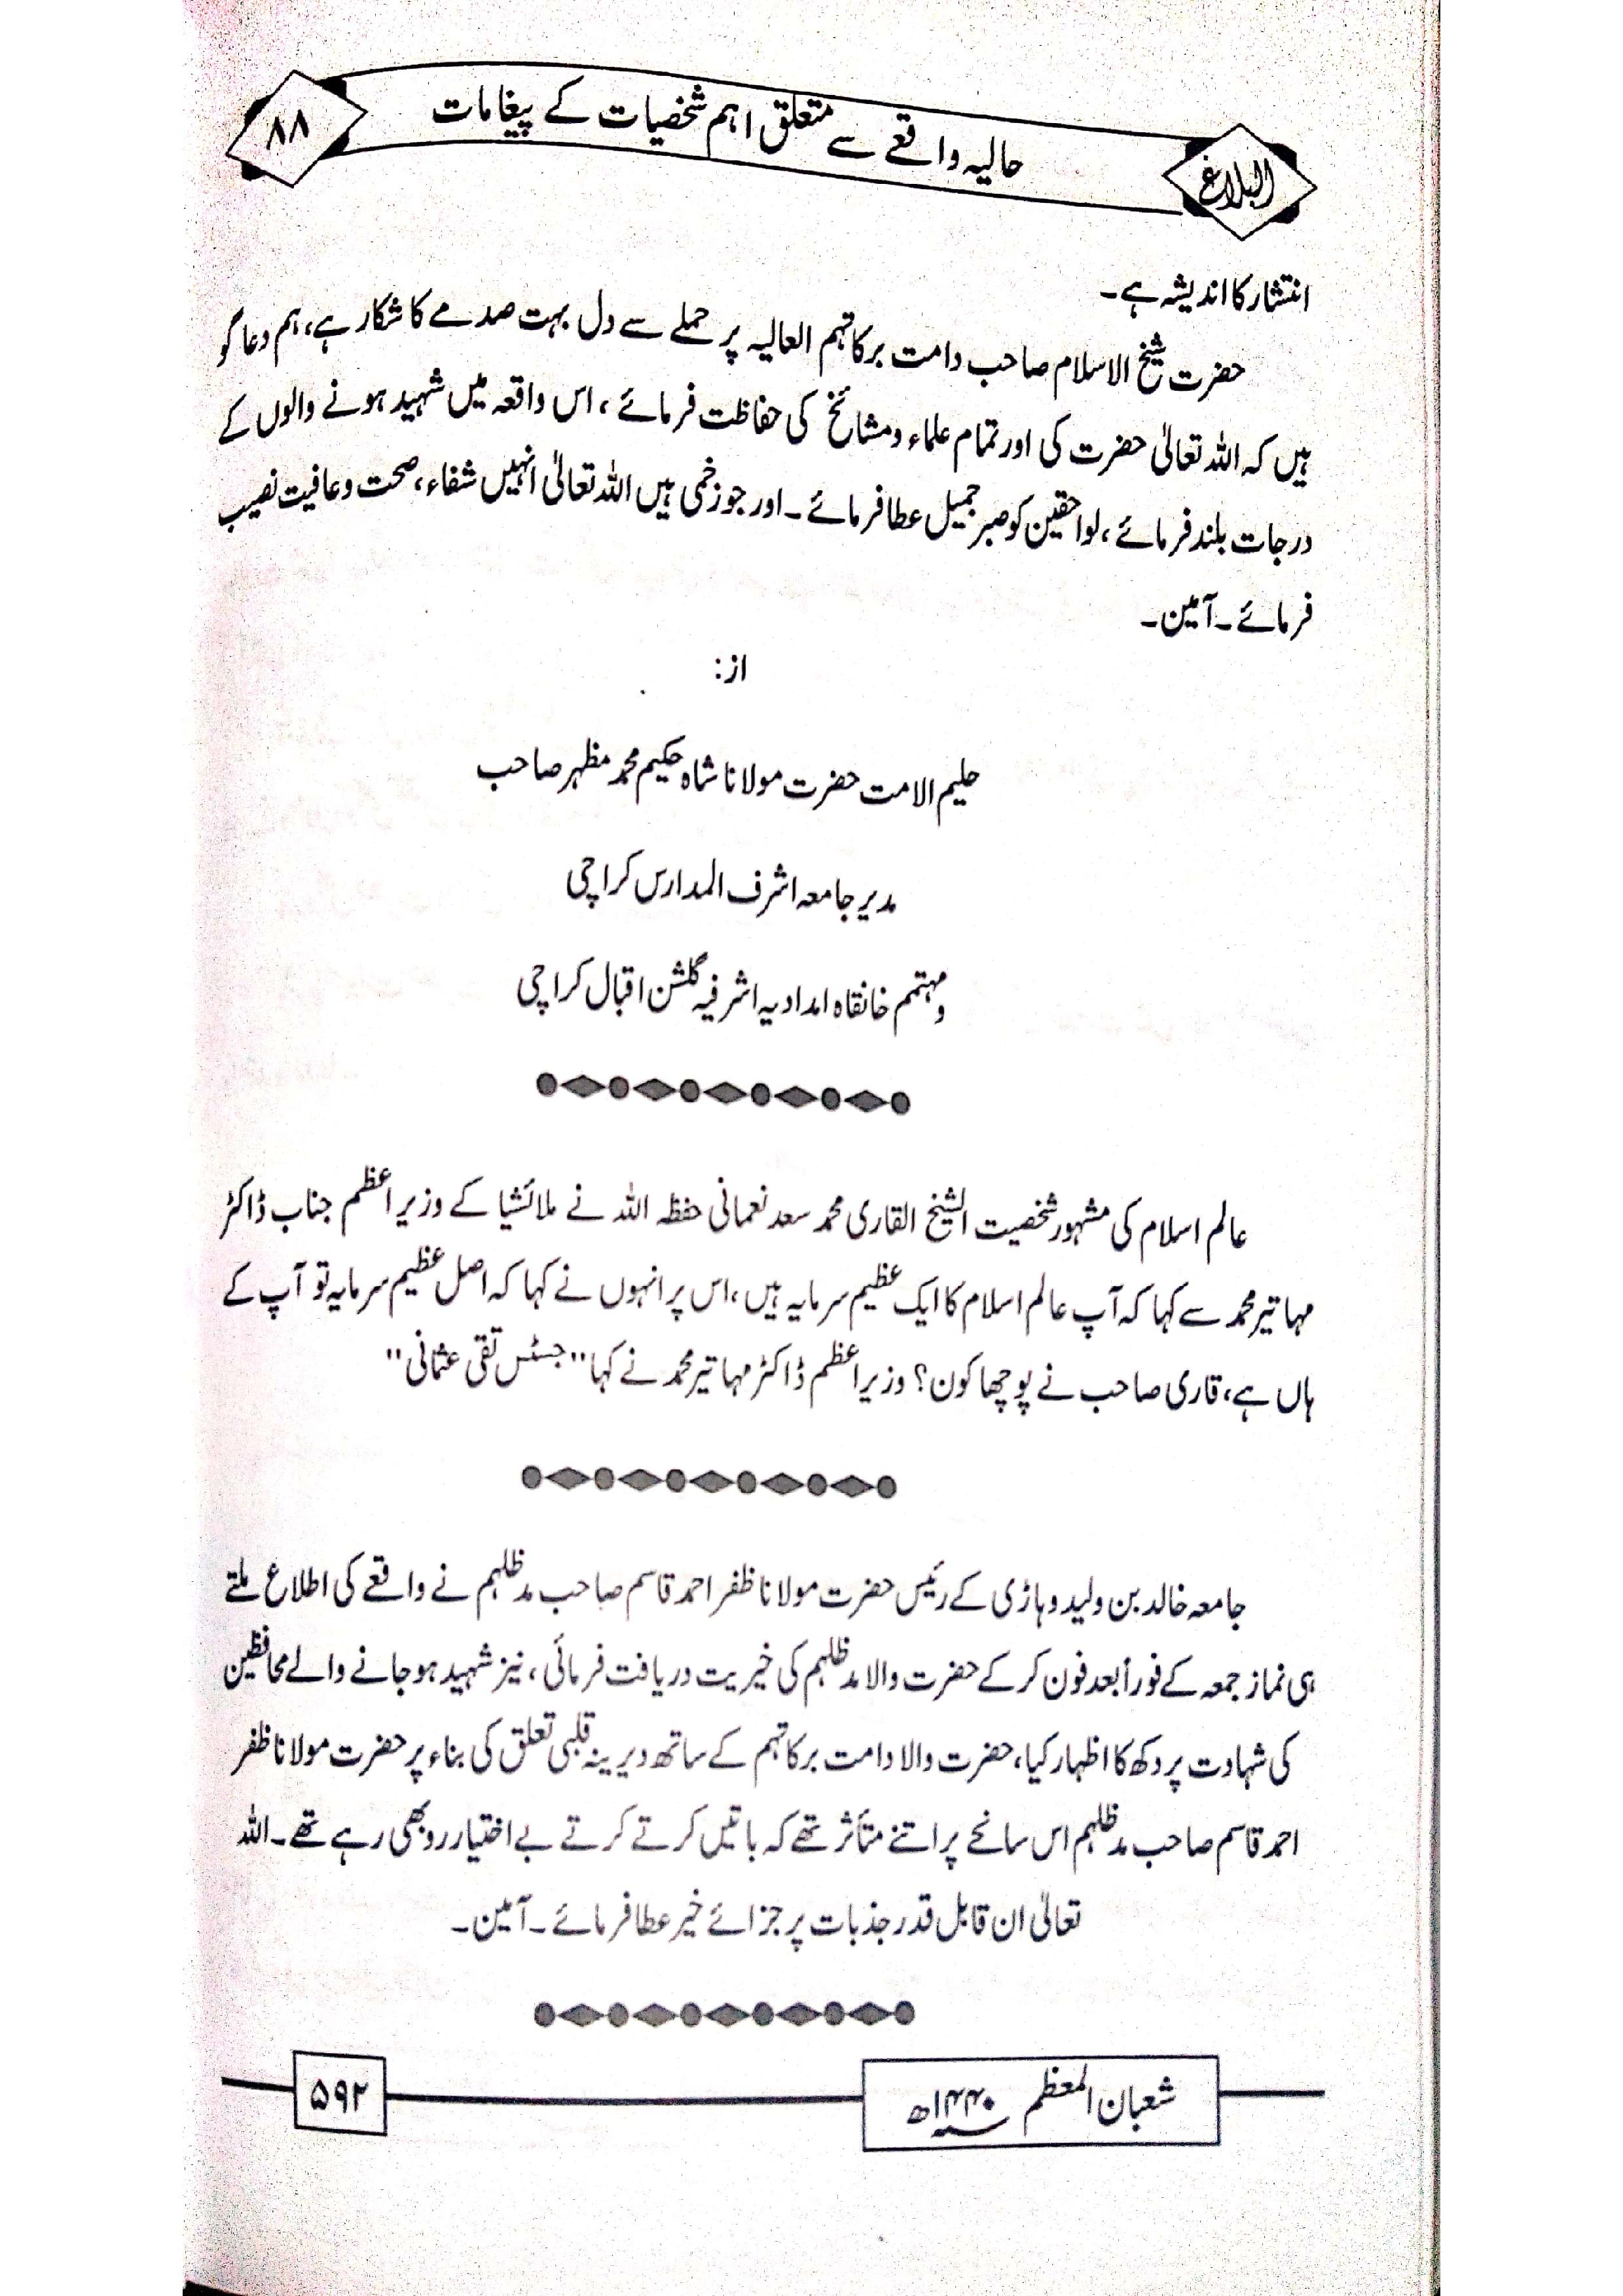 البلاغ
حالیہ واقعے سے متعلق اہم شخصیات کے پیغامات
۸۸
انتشار کا اندیشہ ہے۔
حضرت شیخ الاسلام صاحب دامت برکاتہم العالیہ پر حملے سے دل بہت صدمے کا شکار ہے، ہم دعا گو
ہیں کہ اللہ تعالیٰ حضرت کی اور تمام علماء ومشائخ کی حفاظت فرمائے، اس واقعہ میں شہید ہونے والوں کے
درجات بلند فرمائے، لواحقین کو صبر جمیل عطا فرمائے۔ اور جو زخمی ہیں اللہ تعالیٰ انہیں شفاء، صحت و عافیت نصیب
فرمائے۔ آمین۔
از:
حلیم الامت حضرت مولانا شاہ حکیم محمد مظہر صاحب
مدیر جامعہ اشرف المدارس کراچی
ومہتمم خانقاہ امدادیہ اشرفیہ گلشن اقبال کراچی
عالم اسلام کی مشہور شخصیت الشیخ القاری محمد سعد نعمانی حفظہ اللہ نے ملائشیا کے وزیر اعظم جناب ڈاکٹر
مہاتیر محمد سے کہا کہ آپ عالم اسلام کا ایک عظیم سرمایہ ہیں، اس پر انہوں نے کہا کہ اصل عظیم سرمایہ تو آپ کے
ہاں ہے، قاری صاحب نے پوچھا کون؟ وزیر اعظم ڈاکٹر مہاتیر محمد نے کہا "جسٹس تقی عثمانی"
جامعہ خالد بن ولید وہاڑی کے رئیس حضرت مولانا ظفر احمد قاسم صاحب مدظلہم نے واقعے کی اطلاع ملتے
ہی نماز جمعہ کے فوراً بعد فون کر کے حضرت والا مدظلہم کی خیریت دریافت فرمائی، نیز شہید ہوجانے والے محافظین
کی شہادت پر دکھ کا اظہار کیا، حضرت والا دامت برکاتہم کے ساتھ دیرینہ قلبی تعلق کی بناء پر حضرت مولانا ظفر
احمد قاسم صاحب مدظلہم اس سانحے پر اتنے متأثر تھے کہ باتیں کرتے کرتے بے اختیار رو بھی رہے تھے۔ اللہ
تعالیٰ ان قابل قدر جذبات پر جزائے خیر عطا فرمائے۔ آمین۔
شعبان المعظم ۱۴۴۰ھ
۵۹۲